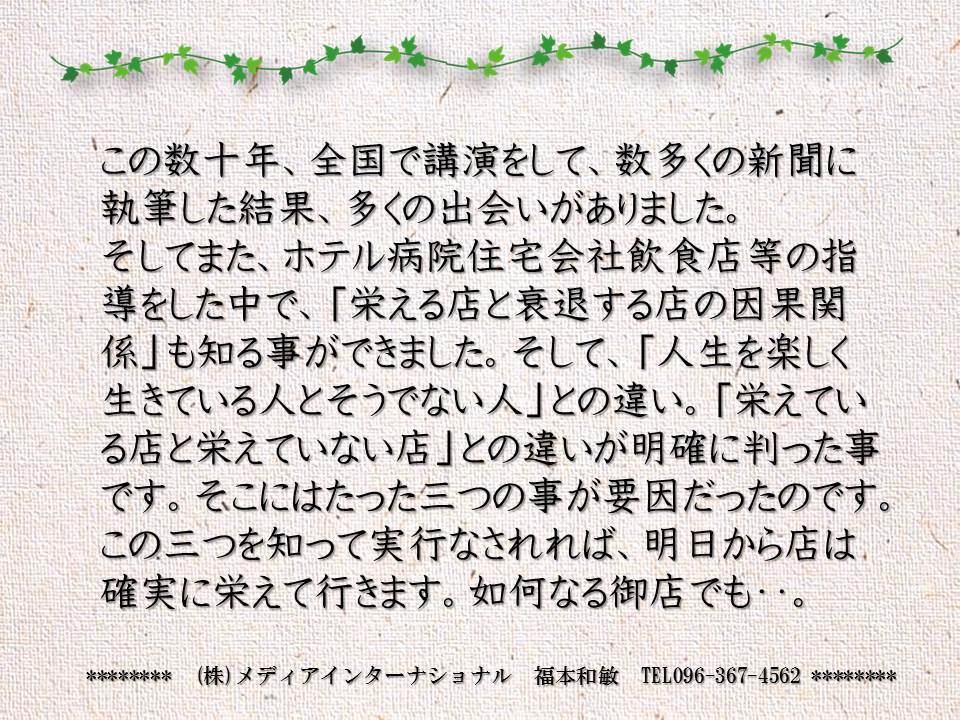 この数十年、全国で講演をして、数多くの新聞に
執筆した結果、多くの出会いがありました。
そしてまた、ホテル病院住宅会社飲食店等の指
導をした中で、「栄える店と衰退する店の因果関
係」も知る事ができました。そして、「人生を楽しく
生きている人とそうでない人」との違い。「栄えてい
る店と栄えていない店」との違いが明確に判った事
です。そこにはたった三つの事が要因だったのです。
この三つを知って実行なされれば、明日から店は
確実に栄えて行きます。如何なる御店でも‥。
******** (株)メディアインターナショナル 福本和敏 TEL096-367-4562 ********